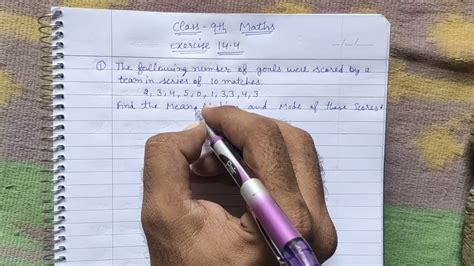 Class - 9th Maths
exercise 14.4
① The following number of goals were scored by a
team in series of 10 matches.
2, 3, 4, 5, 0, 1, 3, 3, 4, 3
Find the Mean and Mode of these Scores.